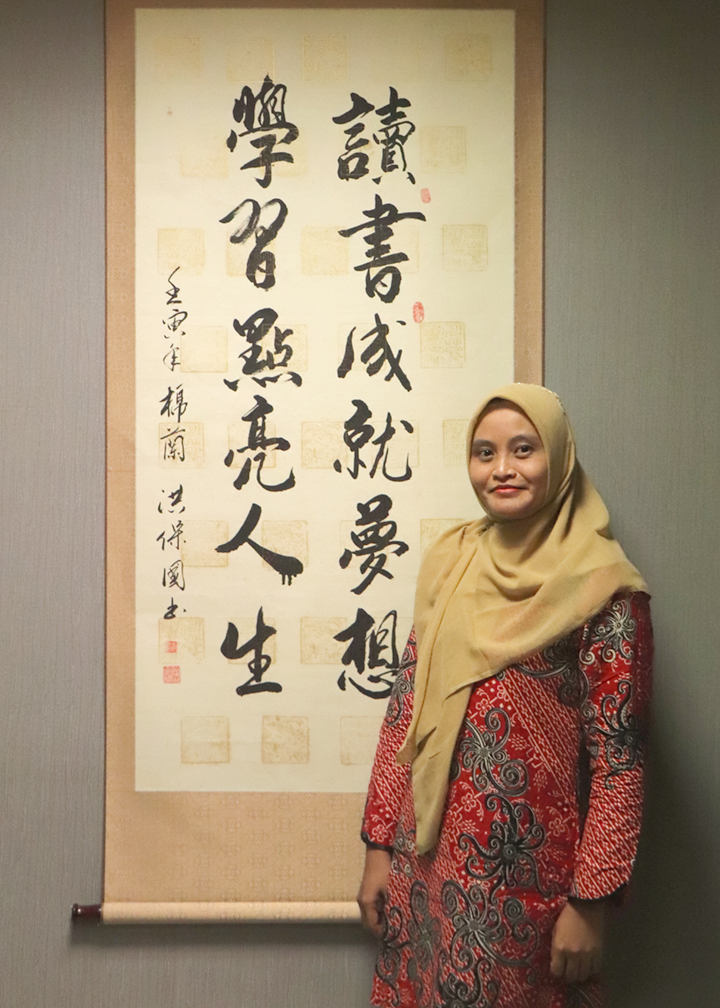 讀書成就夢想
學習點亮人生
壬寅年棉蘭洪保國書